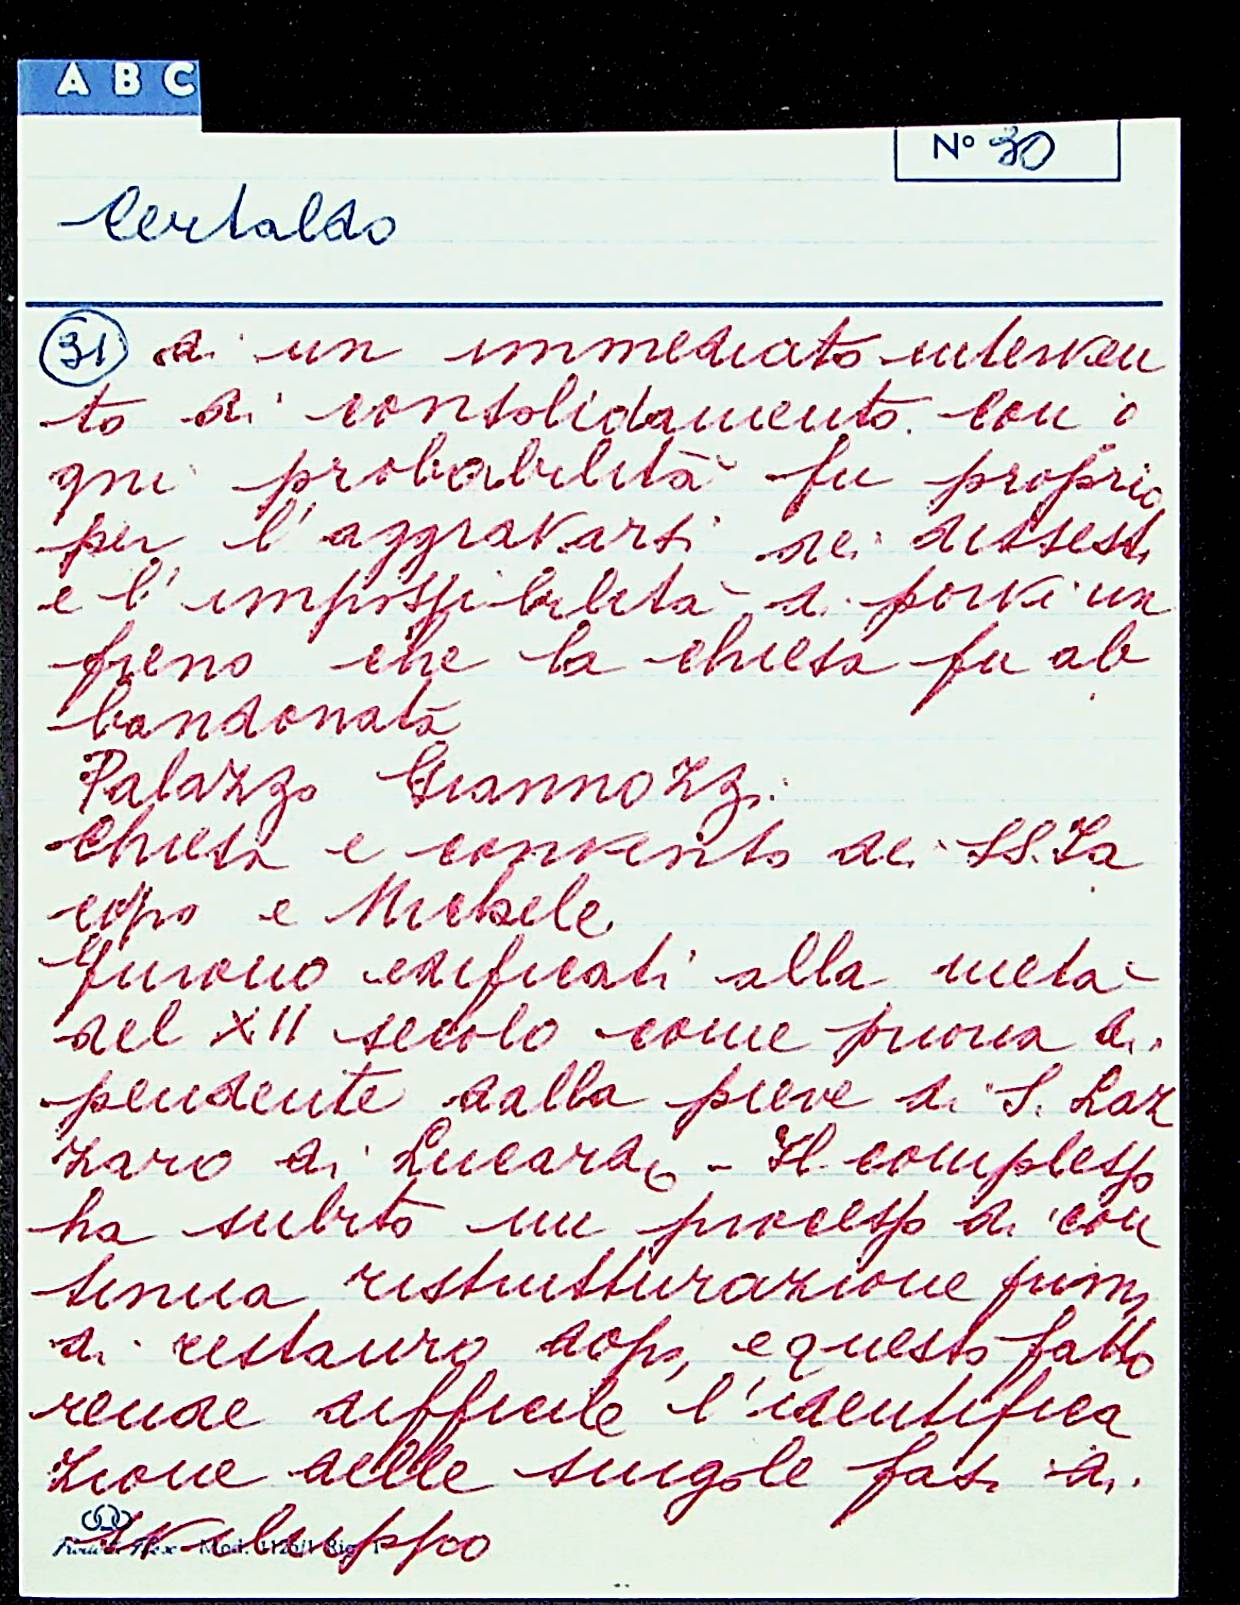 A B C
N° 30
Certaldo
31 di un immediato interven
to di consolidamento. Con o
gni probabilità fu proprio
per l'aggravarsi dei dissesti
e l'impossibilità di porvi un
freno che la chiesa fu ab
bandonata
Palazzo Giannozzi.
Chiesa e convento dei SS. Ja
copo e Michele
Furono edificati alla metà
del XII secolo come prioria di
pendente dalla pieve di S. Laz
zaro di Lucardo - Il complesso
ha subito un processo di con
tinua ristrutturazione prima
di restauro dopo, e questo fatto
rende difficile l'identifica
zione delle singole fasi di
sviluppo
Mod.